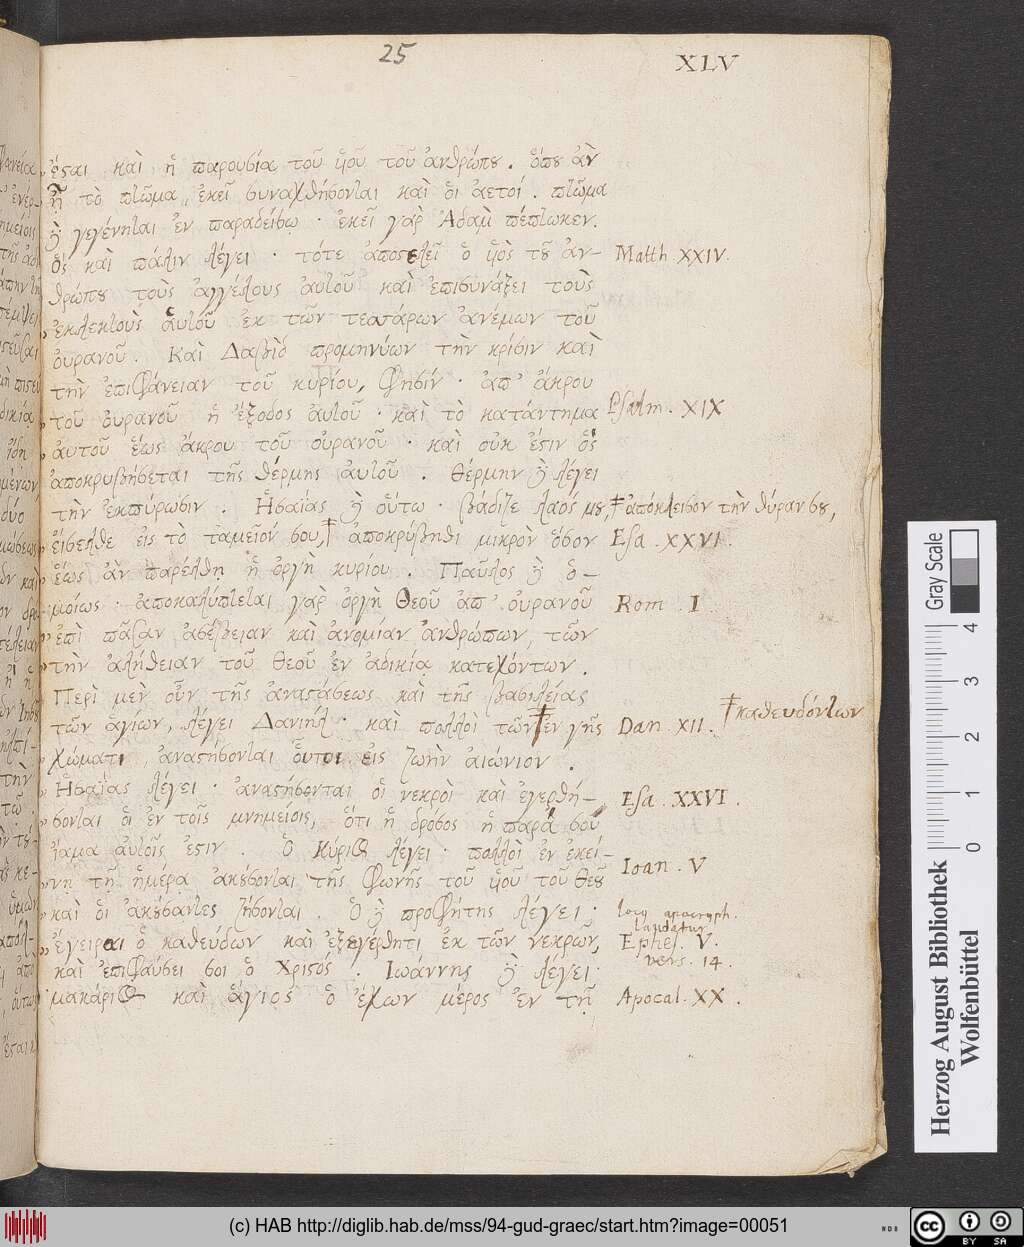 25
XLV
ἔσται καὶ ἡ παρουσία τοῦ υἱοῦ τοῦ ἀνθρώπου. ὅπου ἂν
ᾖ τὸ πτῶμα, ἐκεῖ συναχθήσονται καὶ οἱ ἀετοί. πτῶμα
δὲ γεγένηται ἐν παραδείσῳ · ἐκεῖ γὰρ Ἀδὰμ πέπτωκεν.
ὃς καὶ πάλιν λέγει · τότε ἀποστελεῖ ὁ υἱὸς τοῦ ἀν-
Matth XXIV.
θρώπου τοὺς ἀγγέλους αὐτοῦ καὶ ἐπισυνάξει τοὺς
ἐκλεκτοὺς αὐτοῦ ἐκ τῶν τεσσάρων ἀνέμων τοῦ
οὐρανοῦ. Καὶ Δαβὶδ προμηνύων τὴν κρίσιν καὶ
τὴν ἐπιφάνειαν τοῦ κυρίου, φησίν · ἀπ' ἄκρου
τοῦ οὐρανοῦ ἡ ἔξοδος αὐτοῦ · καὶ τὸ κατάντημα
Psalm. XIX
αὐτοῦ ἕως ἄκρου τοῦ οὐρανοῦ · καὶ οὐκ ἔστιν ὃς
ἀποκρυβήσεται τῆς θέρμης αὐτοῦ. θέρμην δὲ λέγει
τὴν ἐκπύρωσιν. Ἡσαΐας δὲ οὕτω · βάδιζε λαός μου,
† ἀπόκλεισον τὴν θύραν σου,
εἴσελθε εἰς τὸ ταμεῖόν σου,† ἀποκρύβηθι μικρὸν ὅσον
Esa. XXVI.
ἕως ἂν παρέλθῃ ἡ ὀργὴ κυρίου. Παῦλος δὲ ὁ-
μοίως · ἀποκαλύπτεται γὰρ ὀργὴ Θεοῦ ἀπ' οὐρανοῦ
Rom. I.
ἐπὶ πᾶσαν ἀσέβειαν καὶ ἀνομίαν ἀνθρώπων, τῶν
τὴν ἀλήθειαν τοῦ θεοῦ ἐν ἀδικίᾳ κατεχόντων.
Περὶ μὲν οὖν τῆς ἀναστάσεως καὶ τῆς βασιλείας
τῶν ἁγίων, λέγει Δανιήλ · καὶ πολλοὶ τῶν † ἐν γῆς
Dan. XII.
† καθευδόντων
χώματι, ἀναστήσονται οὗτοι εἰς ζωὴν αἰώνιον.
Ἡσαΐας λέγει · ἀναστήσονται οἱ νεκροὶ καὶ ἐγερθή-
Esa. XXVI.
σονται οἱ ἐν τοῖς μνημείοις, ὅτι ἡ δρόσος ἡ παρὰ σοῦ
ἴαμα αὐτοῖς ἐστιν. Ὁ Κύριος λέγει · πολλοὶ ἐν ἐκεί-
Ioan. V
νῃ τῇ ἡμέρᾳ ἀκούσονται τῆς φωνῆς τοῦ υἱοῦ τοῦ θεοῦ
καὶ οἱ ἀκούσαντες ζήσονται. Ὁ δὲ προφήτης λέγει ·
locus apocryph.
laudatur
ἔγειραι ὁ καθεύδων καὶ ἐξεγέρθητι ἐκ τῶν νεκρῶν,
Ephes. V.
vers. 14.
καὶ ἐπιφαύσει σοι ὁ Χριστός. Ἰωάννης δὲ λέγει ·
μακάριος καὶ ἅγιος ὁ ἔχων μέρος ἐν τῇ
Apocal. XX.
Gray Scale
0 1 2 3 4
Herzog August Bibliothek
Wolfenbüttel
(c) HAB http://diglib.hab.de/mss/94-gud-graec/start.htm?image=00051
WDB
cc BY SA